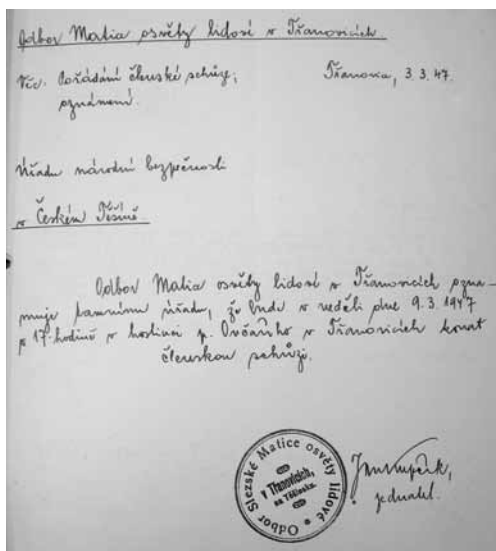 Odbor Matice osvěty lidové v Třanovicích.
Věc. Pořádání členské schůze,
oznámení.
Třanovice, 3.3.47.
Úřadu národní bezpečnosti
v Českém Těšíně.
Odbor Matice osvěty lidové v Třanovicích ozna-
muje tamnímu úřadu, že bude v neděli dne 9.3.1947
v 17-hodině v hostinci p. Ovčařího v Třanovicích konat
členskou schůzi.
Odbor Slezské Matice osvěty lidové
v Třanovicích,
na Těšínsku.
jednatel.